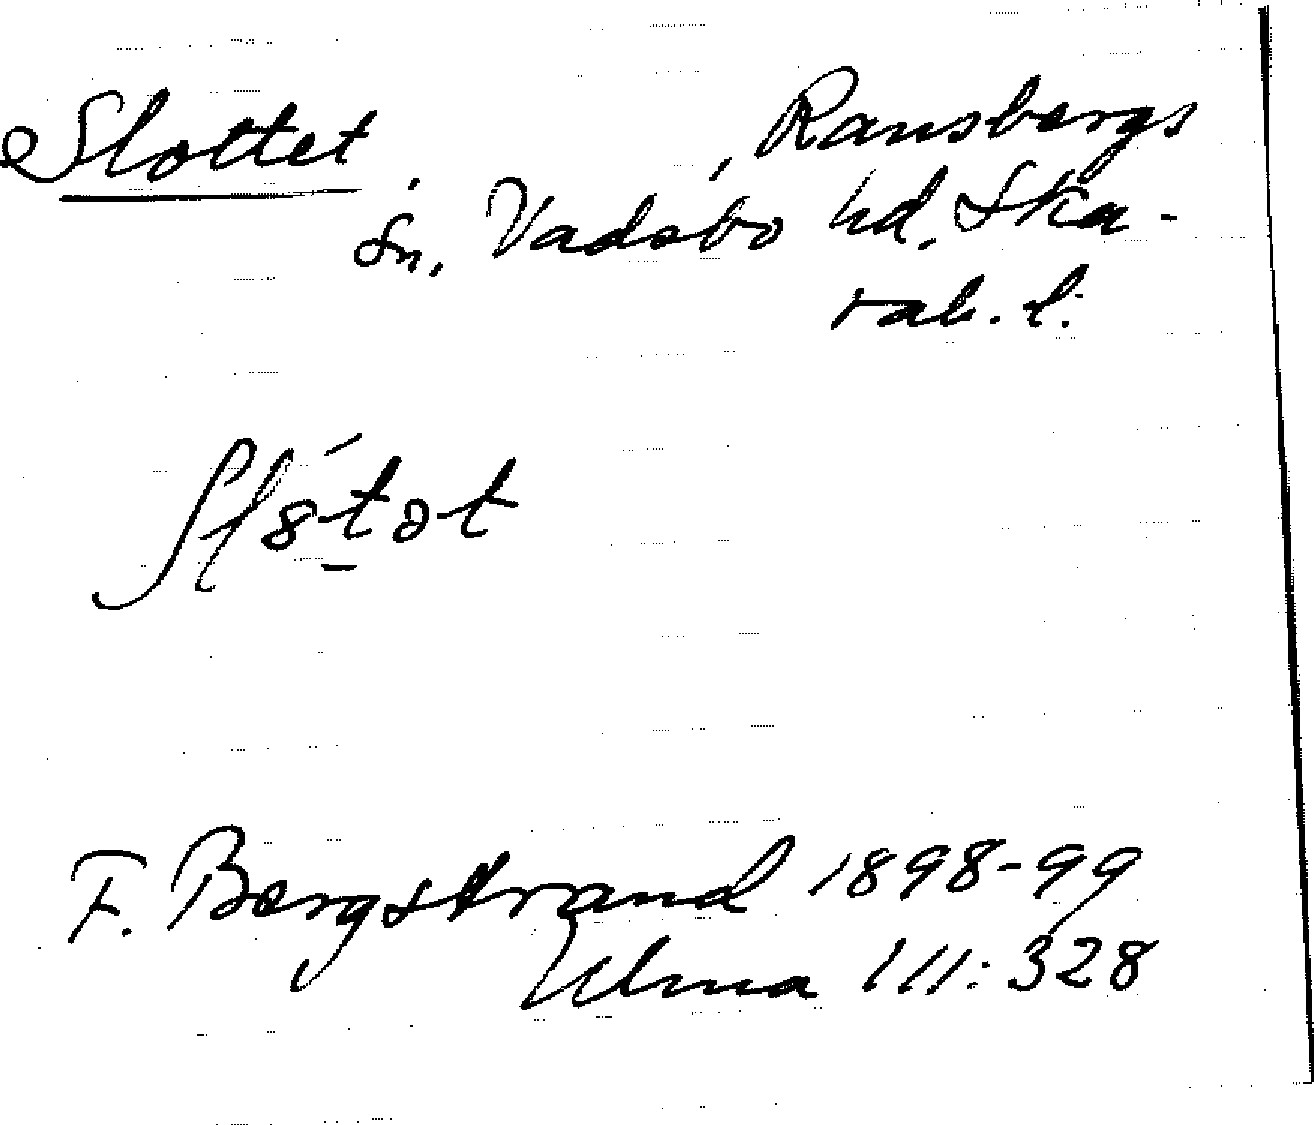 Slottet, Ransbergs
sn, Vadsbo hd, Ska-
rab. l.
F. Bergstrand 1898-99
Ulma 111:328